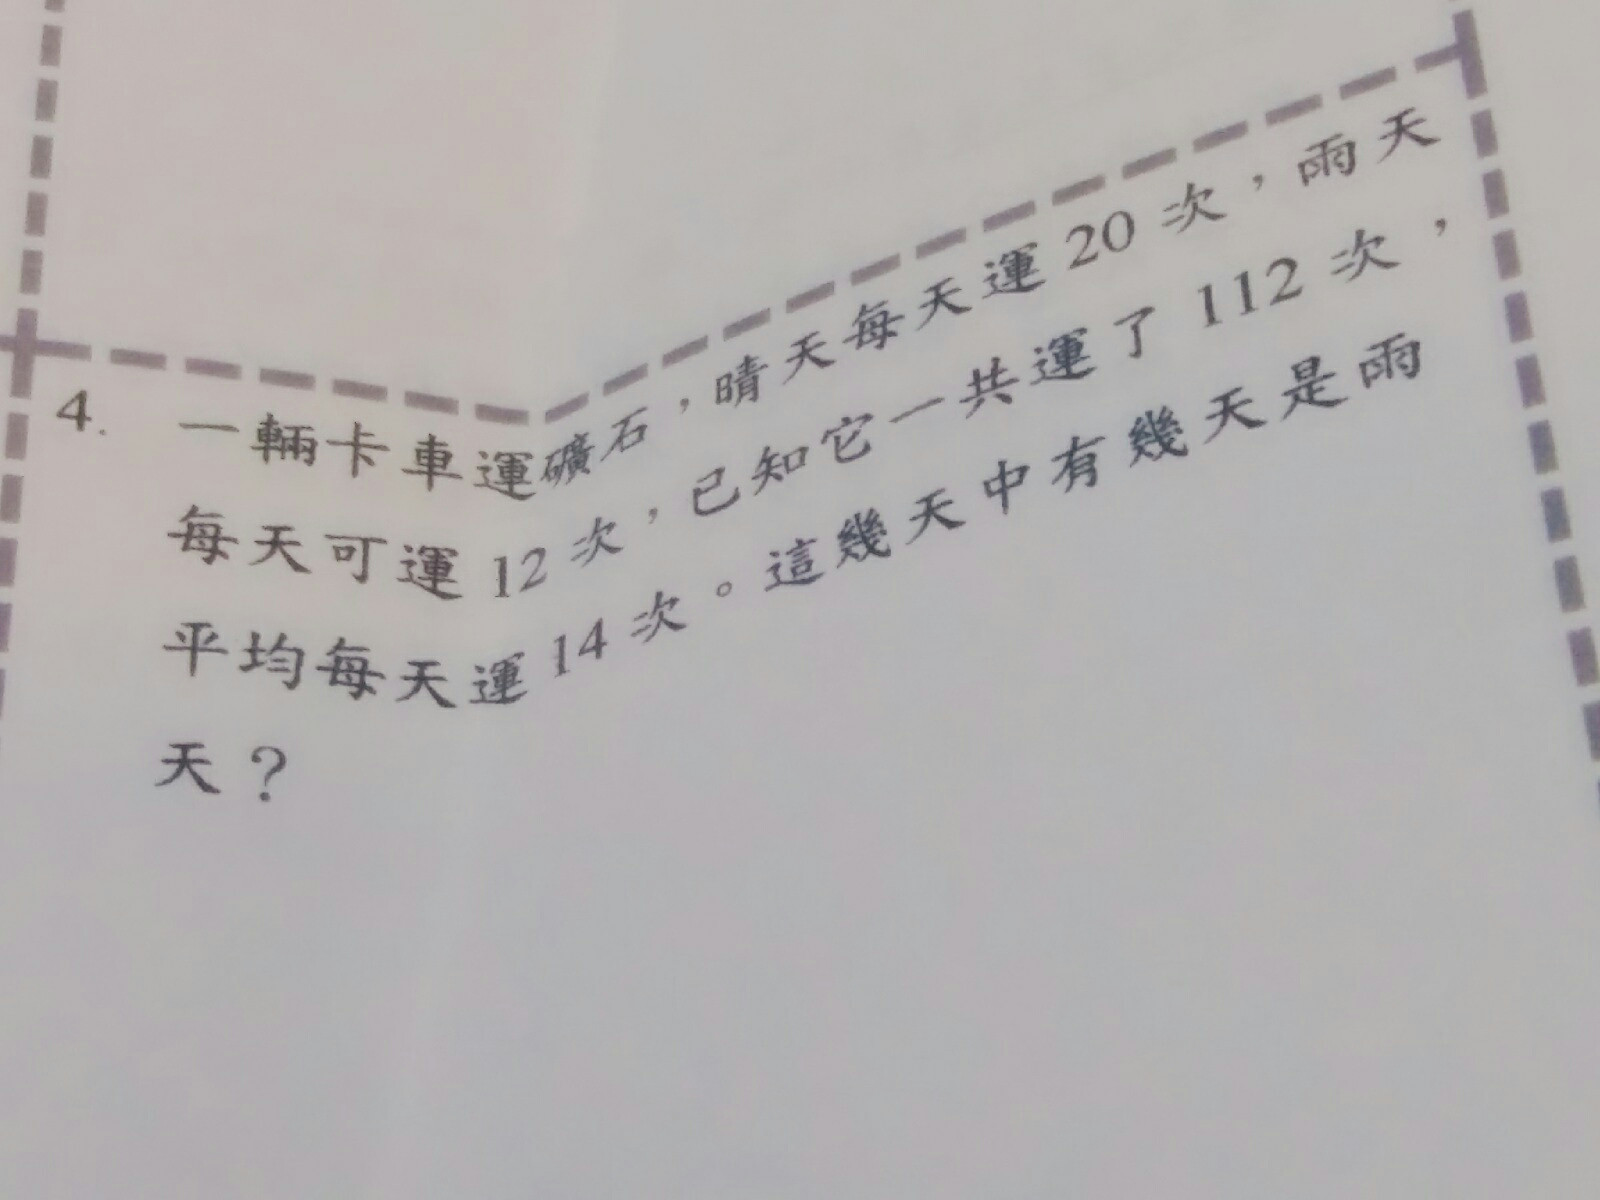 4. 一輛卡車運礦石，晴天每天運 20 次，雨天
每天可運 12 次，已知它一共運了 112 次，
平均每天運 14 次。這幾天中有幾天是雨
天？